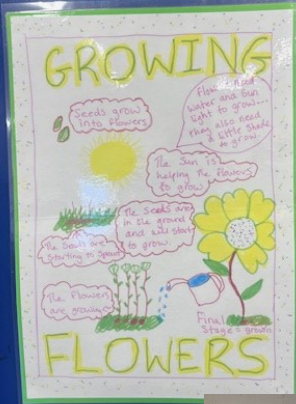 GROWING
Seeds grow
into flowers
Flowers need
water and Sun
light to grow...
they also need
a little shade
to grow.
The Sun is
helping the flowers
to grow
The Seeds are
in the ground
and will start
to grow.
The Seeds are
starting to Sprout
The flowers
are growing
Final
Stage = growth
FLOWERS